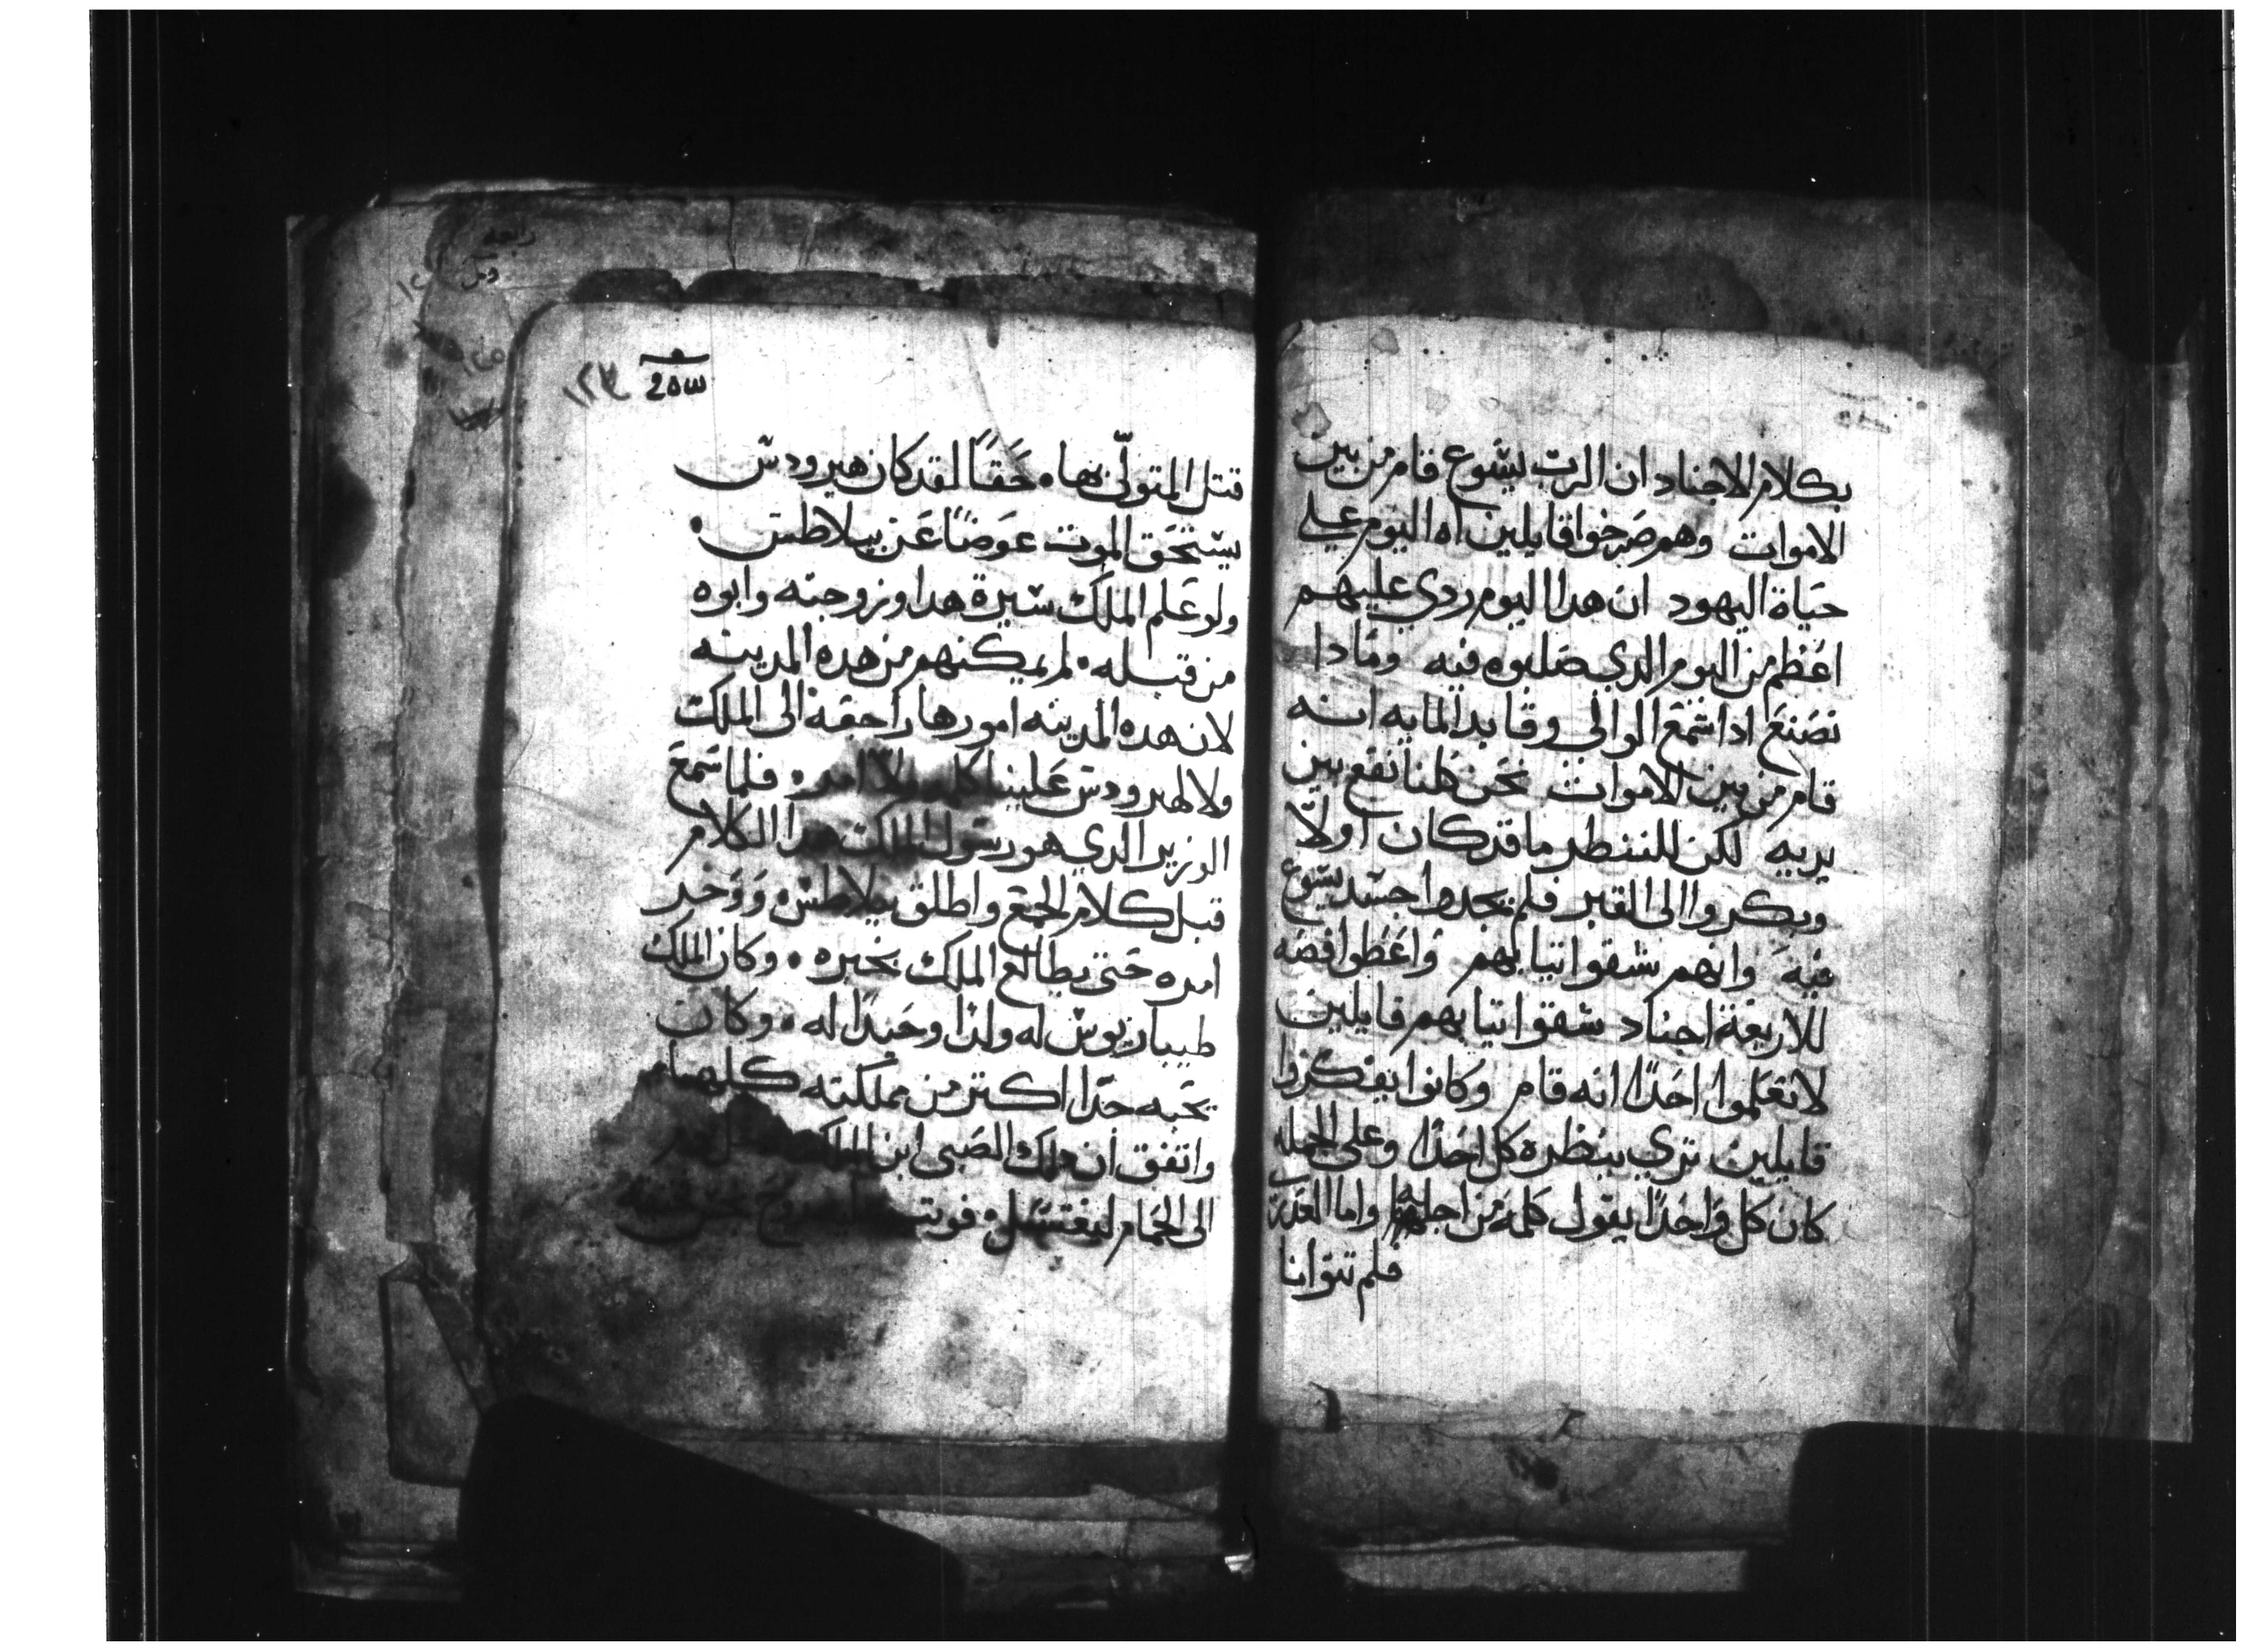 بكلام الاجناد ان الرب يسوع قام من بين
الاموات وهم صرخوا قايلين اه اليوم علي
حياة اليهود ان هدا اليوم ردي عليهم
اعظم من اليوم الدي صلبوه فيه ومادا
نصنع ادا سمع الوالي وقايد المايه انه
قام من بين الاموات نحن كلنا نقع بين
يديه لكن لننطر ما قد كان اولاً
وبكروا الى القبر فلم يجدوا جسد يسوع
فيه وانهم شقوا تيابهم واعطوا فضه
للاربعة اجناد شقوا تيابهم قايلين
لا تعلموا احداً انه قام وكانوا يفكروا
قايلين تري ينظره كل احداً وعلى الجمله
كان كل واحداً يقول كلمه من اجله واما العدرى
فلم تتوانا
١٢٣
قتل المتولّي بها حقاً لقد كان هيرودس
يستحق الموت عوضاً عن بيلاطس
ولو علم الملك سيرة هدا وزوجته وابوه
من قبله لم يمكنهم من هده المدينه
لان هده المدينه امورها راجعه الى الملك
ولا لهيرودس علينا كلمه ولا امر فلما سمع
الوزير الدي هو رسول الملك هدا الكلام
قبل كلام الجمع واطلق بيلاطس ووخر
امره حتى يطالع الملك بخبره وكان الملك
طيباريوس له ولداً وحيداً له وكان
يحبه جداً اكتر من مملكته كلها
واتفق ان دلك الصبي ابن الملك
الى الحمام ليغتسل